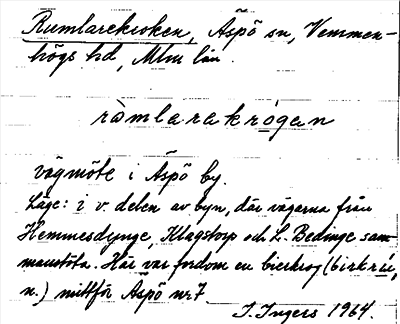 Rumlarekroken, Äspö sn, Vemmen-
högs hd, Mlm län.
ràmlarakrógan
vägmöte i Äspö by.
Läge: i v. delen av byn, där vägarna från
Hemmesdynge, Klagstorp och L. Bedinge sam-
manstöta. Här var fordom en bierkrog (birkróú,
n.) mittför Äspö nr 7
I. Ingers 1964.